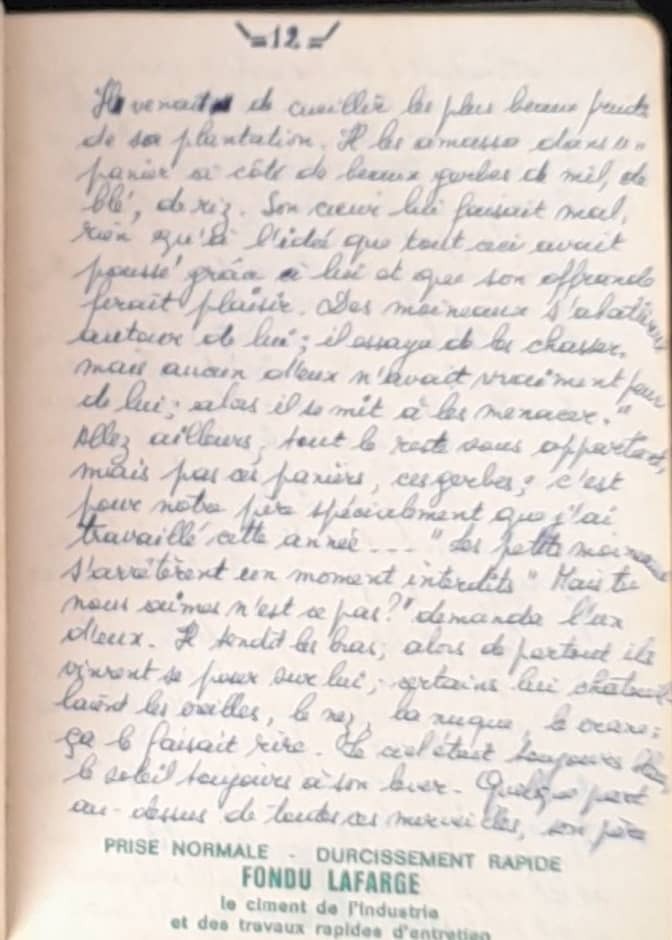 =12=
Il venait de cueillir les plus beaux fruits
de sa plantation. Il les amassa dans un
panier à côté de beaux gerbes de mil, de
blé, de riz. Son cœur lui faisait mal,
rien qu'à l'idée que tout ceci avait
poussé grâce à lui et que son offrande
ferait plaisir. Des moineaux s'abattirent
autour de lui ; il essaya de les chasser,
mais aucun d'eux n'avait vraiment peur
de lui ; alors il se mit à les menacer. "
Allez ailleurs, tout le reste vous appartient,
mais pas ces paniers, ces gerbes ; c'est
pour notre père spécialement que j'ai
travaillé cette année ... " Les petits moineaux
s'arrêtèrent un moment interdits " Mais tu
nous aimes n'est ce pas ? " demanda l'un
d'eux. Il tendit les bras, alors de partout ils
vinrent se poser sur lui ; certains lui chatouil
laient les oreilles, le nez, la nuque, le crâne ;
ça le faisait rire. Le ciel était toujours
le soleil toujours à son lever. Quelque part
au-dessus de toutes ces merveilles, son père
PRISE NORMALE - DURCISSEMENT RAPIDE
FONDU LAFARGE
le ciment de l'industrie
et des travaux rapides d'entretien